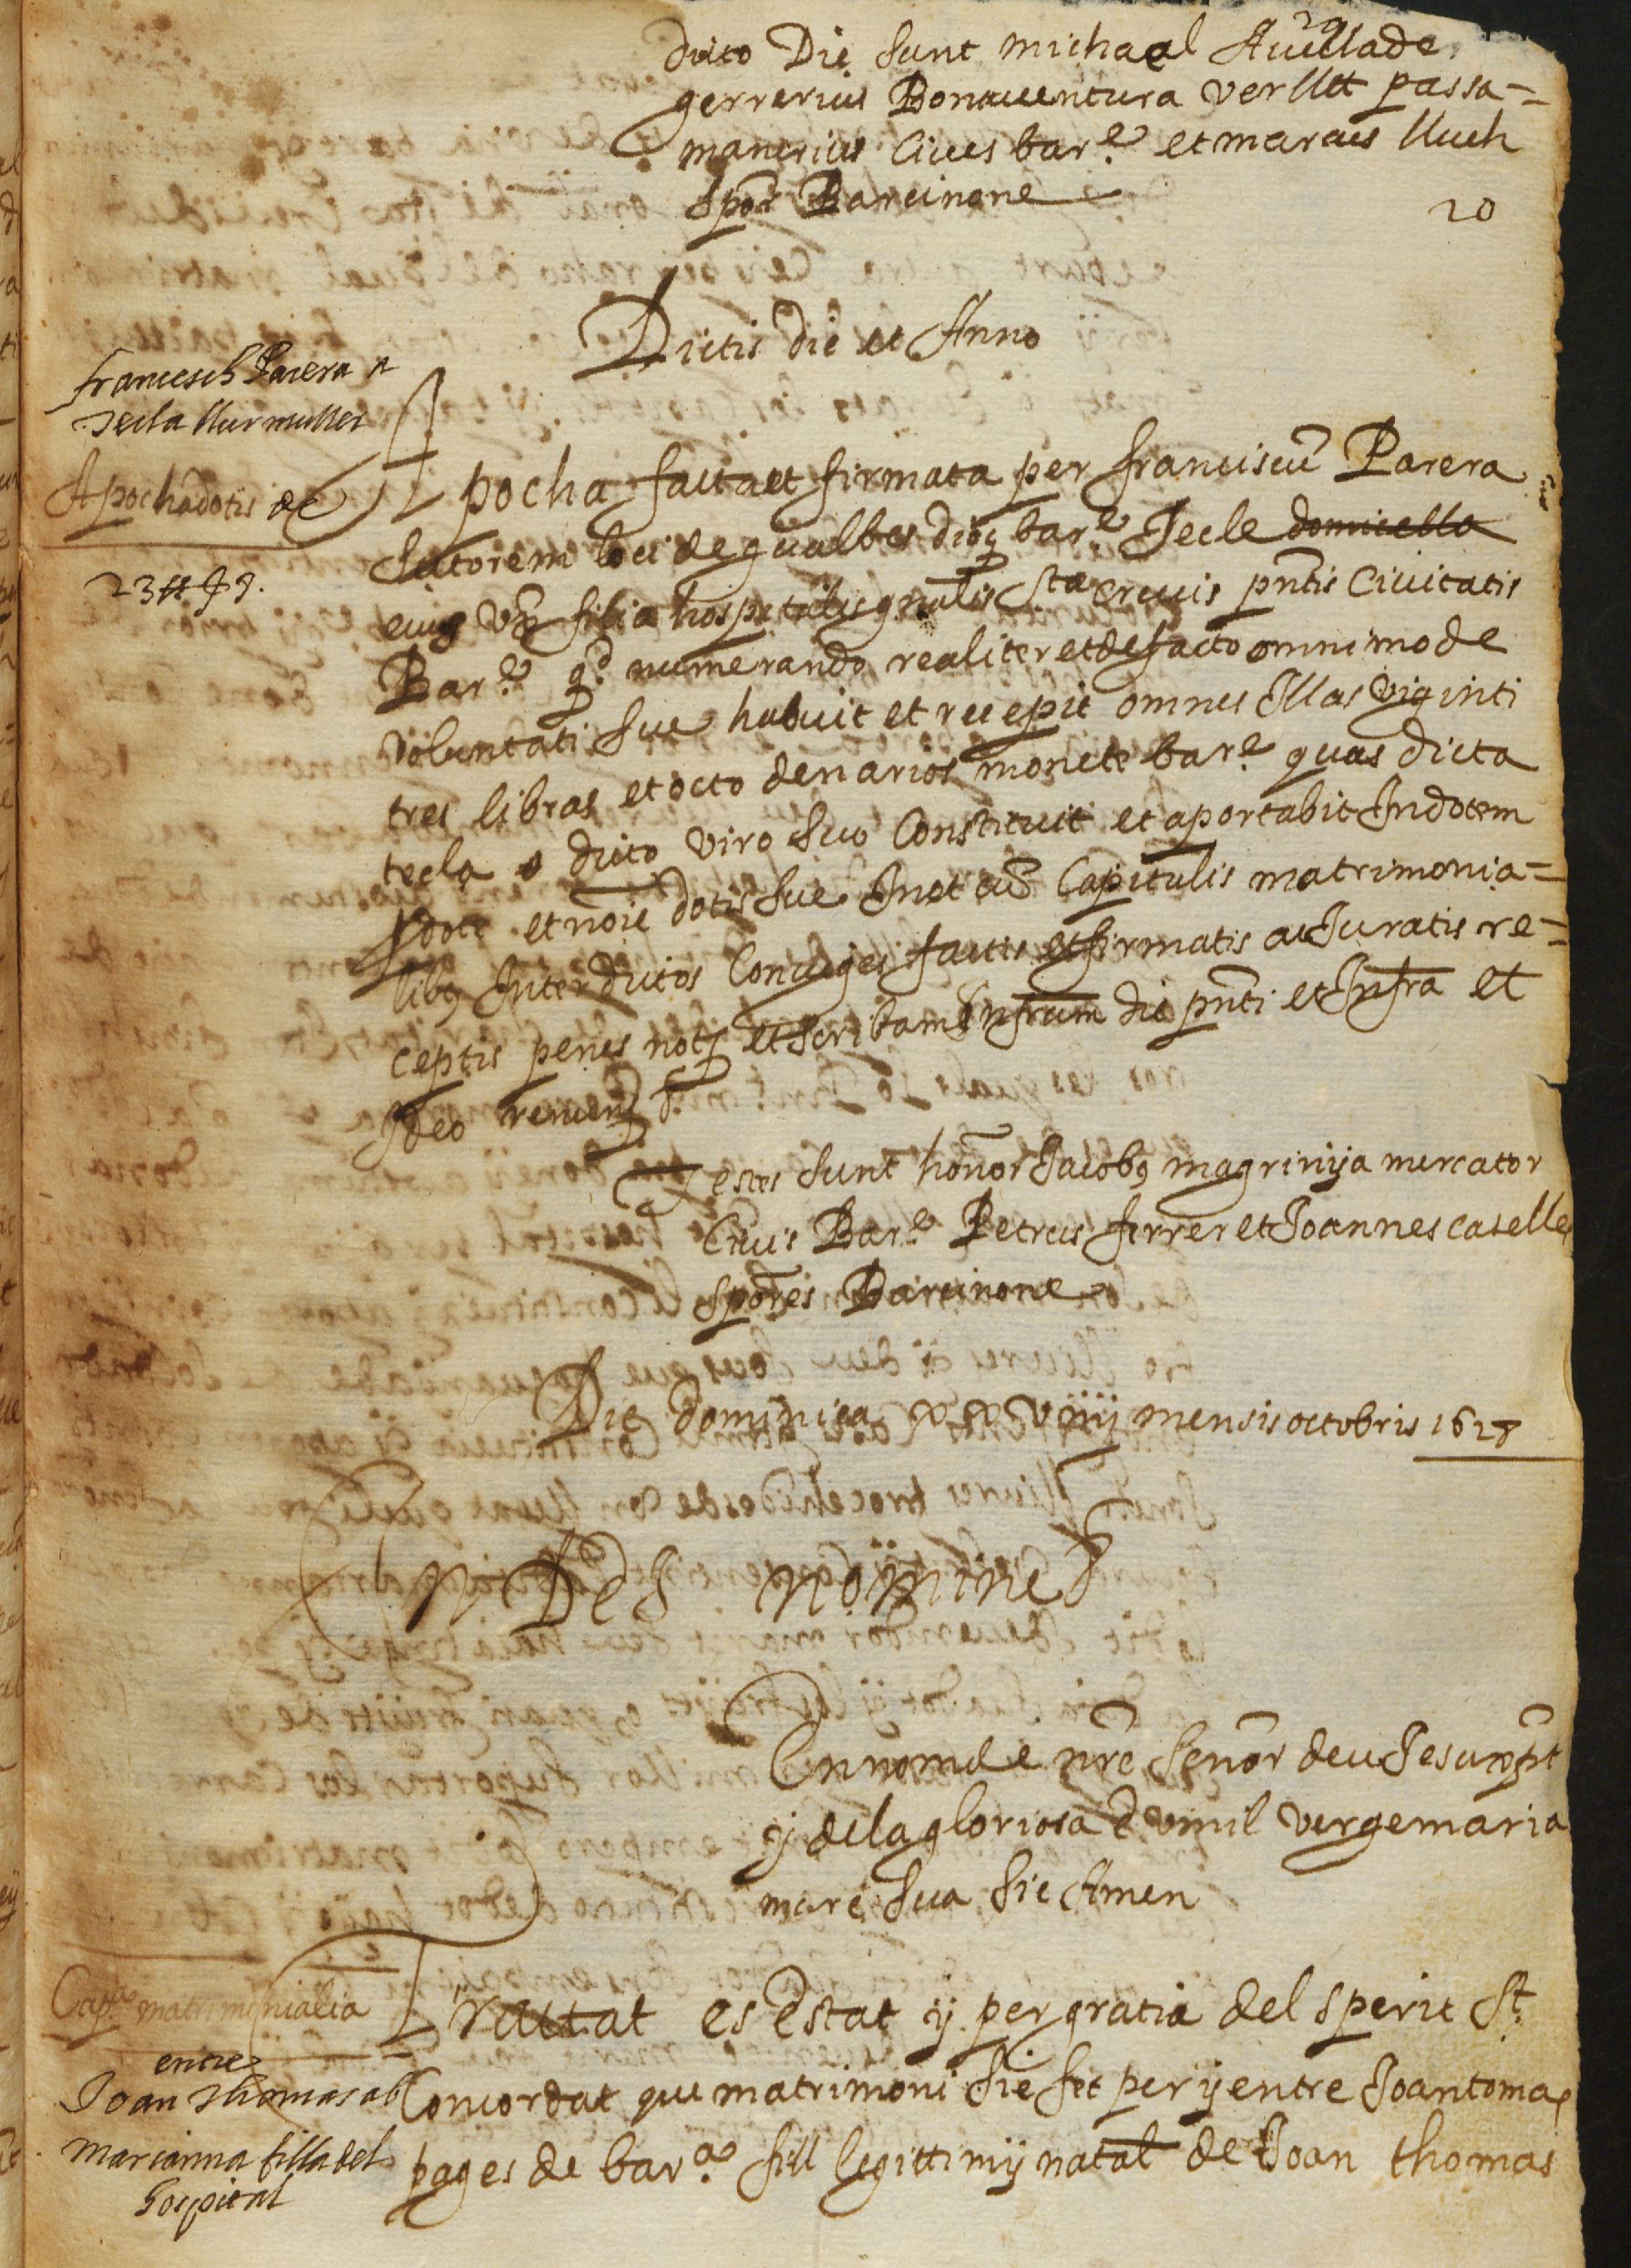 29
dicto Die sunt michael Avellade
gerrerius Bonaventura verllet passa=
manerius Cives barᵉ et marcus lluch
spōr Barcinone
20
Dictis die et Anno
francesch Parera
Tecla
Apocha dotis de
23 ₶ 9.
Apocha facta et firmata per franciscū Parera
sutorem loci de gualbes dioç barᵉ Tecle domicella
eius vx filia hospitalis gnālis Sta Crucis pn̄tis Civitatis
Barᵉ qd numerando realiter et de facto omnimode
voluntati sue habuit et recepit omnes Illas viginti
tres libras et octo denarios monete barᵉ quas dicta
tecla dicto viro suo Constituit et aportabit In dotem
pdote et noīe dotis sue Inet cū Capitulis matrimonia=
libꝫ Inter dictos Coniuges factis et firmatis ac Juratis re=
ceptis penes notꝫ et scribam Infrum die pn̄ti et Infra et
Ideo renuen̄
Testes sunt honōr Jacobꝫ magrinya mercator
Civis Barᵉ Petrus ferrer et Joannes caselles
spōres Barcinone
Die dominica xxviiij mensis octobris 1628
In Dei nomine
En nom de nr̄e senōr deu Jesu xp̄st
ÿ de la gloriosa E vmil verge maria
mare sua sie Amen
Capˡᵃ matrimonialia
entre
Joan Thomas ab
Marianna filla del
hospital
Trattat es Estat ÿ per gratia del sperit St
Concordat que matrimoni sie fet per ÿ entre Joan tomas
pages de barᵃ fill legittim ÿ natal de Joan thomas